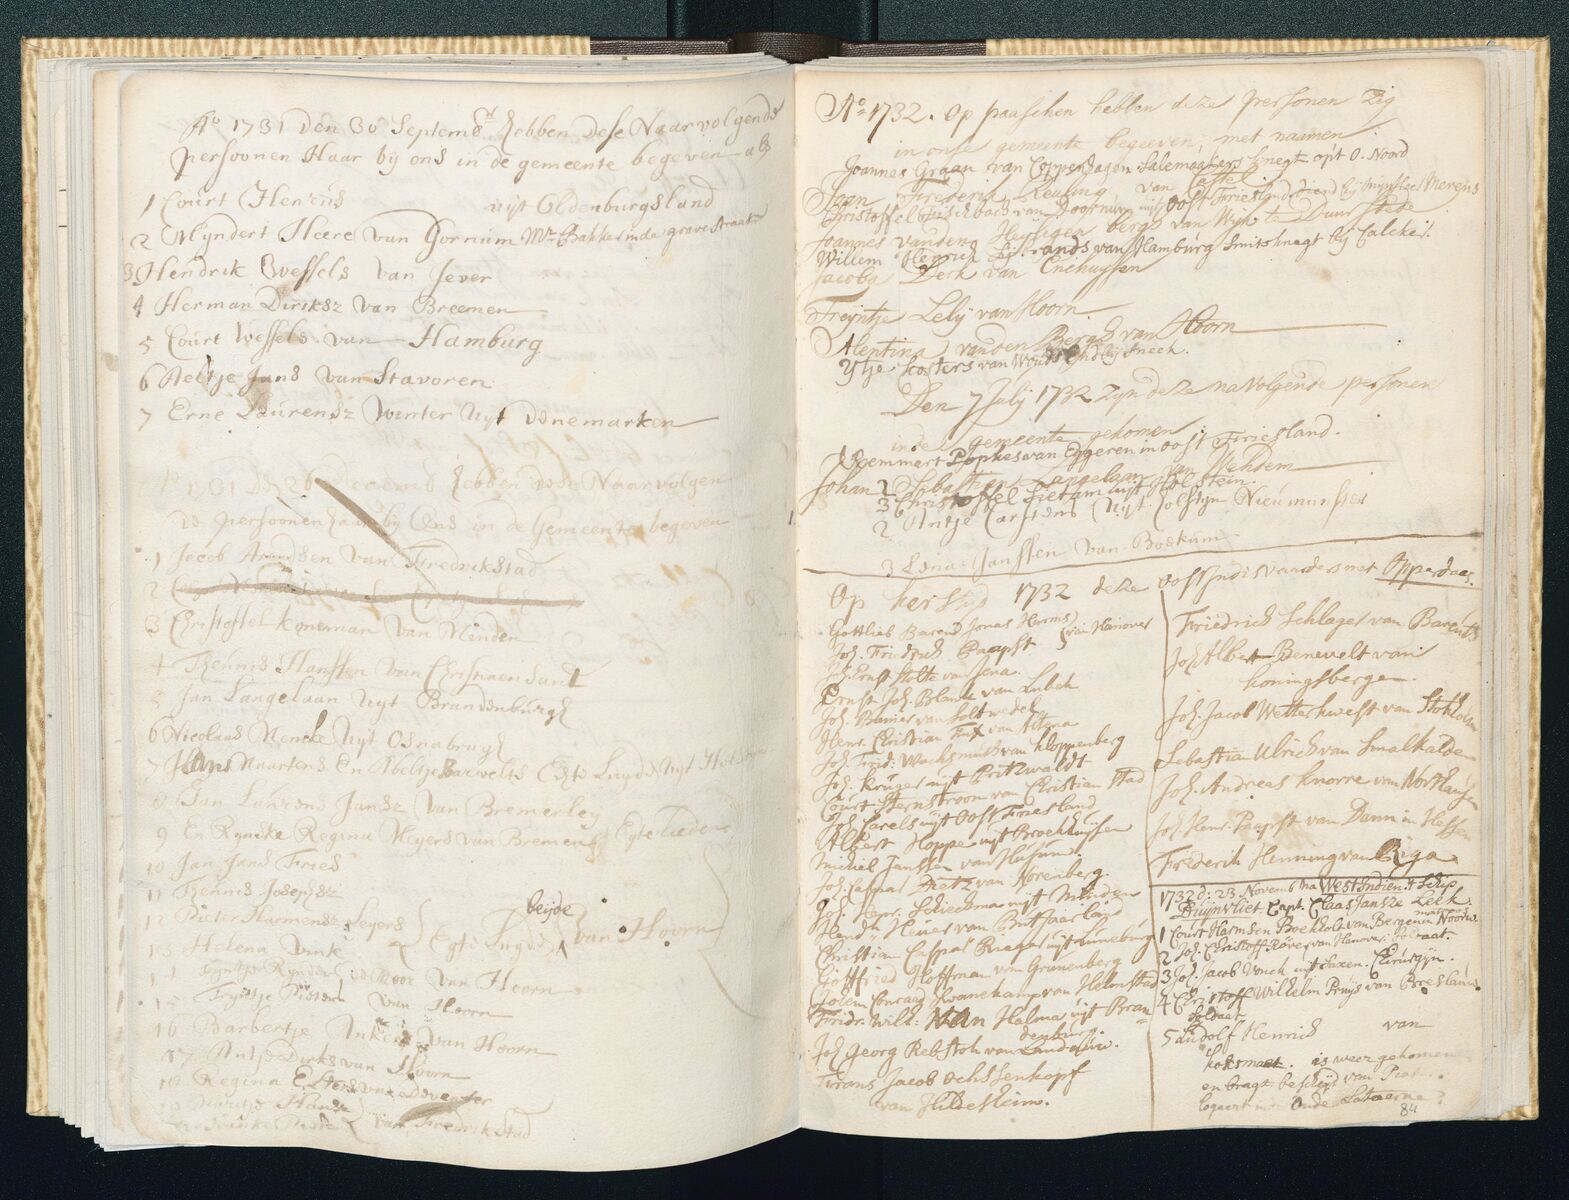 Ao 1731 den 30 Septembr hebben dese Naarvolgende
persoonen Haar bij ons in de gemeente begeven als
1 Court Henrus uijt Oldenburgsland
2 Mijndert Heere van Gorcum Mr Bakker in de grave straat
3 Hendrik Wessels van Jever
4 Herman Diriksz van Breemen
5 Court Wessels van Hamburg
6 Aeltje Jans van Stavoren
7 Erne Laurensz Winter Uyt denemarken
Ao 1731 den 26 Decemb hebben dese Naarvolgen
de persoonen haar by Ons in de Gemeente begeven
1 Jacob Arendsen van Fredrikstad
2
3 Christoffel Koneman van Minden
4 Theunis Hanssen van Christiaen Sant
5 Jan Langelaan Uyt Brandenburgh
6 Nicolaas Mencke Uyt Osnabrugh
7 Hans Maartens En Abeltje Barvelts Egte Luyde Uyt
8 Jan Laurens Jansz van Bremerley
9 En Rynske Regina Meyers van Bremen Egte lieden
10 Jan Jans Fries
11 Theunis Josephsz
12 Pieter Harmensz Seyers
13 Helena Vink Egte Luyde beijde van Hoorn
14 Tryntje Rynders de Moor van Hoorn
15 Tryntje Pieters van Hoorn
16 Barbertje van Hoorn
17 Antje Dirks van Hoorn
18 Regina van Deventer
19 Hansz
van Fredrikstad
No 1732. Op paaschen hebben deze personen zig
in onse gemeente begeeven, met naamen
Joannes Graan van Coppenhagen Salemaakers knegt opt O. Noord
Jaan Frederik Reuling van
Christoffel Busschbach van Doornum uijt Oost Friesland diend bij Mynheer Merens
Joannes vanden Heyligen bergh van Wyk te Duurstede
Willem Henrick van Hamburg Smitsknegt bij Calcker.
Jacoba Derk van Enchuysen
Treyntje Lely van Hoorn
Alentina vanden Bergh van Hoorn
Ytje Kosters van Woudsend bij Sneek.
Den 7 July 1732 Zyn deze navolgende personen
in de gemeente gekomen
Poemmert Popkes van Eggeren in oost Friesland.
Johan 1 Sebastiaen Langelaar van Wehdem
3 Christoffel Fietam uijt Holstein.
2 Antje Carstens Uyt Holstyn Nieumunster
3 Lena Janssen van Bockum
Op kerstyd 1732 deze oostIndisvaarders met Opperdoes.
Gottlieb Barend Jonas Harms
Joh. Friedrich Paapst van Hanover
Joh. Ernst Stolte van Jena.
Ernst Joh. Blanck van Lubek
Joh. Bamier van Soltwedel
Henr. Christian Fux van Altena
Joh. Frid. Wachsmuth van Kloppenberg
Joh. Kruger uijt Pritzwaldt
Court Sternstroom van Christian Stad
Joh. Carels uijt Oost Friesland
Albert Hoppe uijt Broekhuijsen
Michiel Janssen van Husum.
Joh. Caspar Dietz van Norenberg.
Joh. Henr. Schieckman uijt Minden
Hendk Heuer van Butjaarland
Christian Caspar Kruger uijt Luneburg
Gottfried Hoffman van Grunenberg
Jolem Conraad Swanekamp van Helmstad
Fridr. Wilh: van Halma uijt Bran=
denburg
Joh Georg Rebstok van Landau.
Frans Jacob Ochssenkopf
van Hildesheim.
Friedrich Schlager van Barents
Joh Albert Benevelt van
Koningsbergen.
Joh. Jacob Wetterkwest van Stokholm
Sebastia Ulrich van Smalkalde
Joh. Andreas Knorre van Northausen
Joh. Henr. Paapst van Dann in Hessen
Frederik Henning van Riga
1732 d: 23 Novemb na West Indien 't Schip
Duijnvliet Capt. Claas Jansze Leek.
1 Court Harmsen Boekholt van Bergen in Noorw. matroos
2 Joh. Christoff Röver van Hanover. Soldaat.
3 Joh. Jacob Vonck uijt Saxen. Chirurgijn.
4 Christoff Wilhelm Pruys van Breslau.
Soldaat
5 Ludolf Henrich van
koksmaet. is weer gekomen
en bragt bescheyd van
84